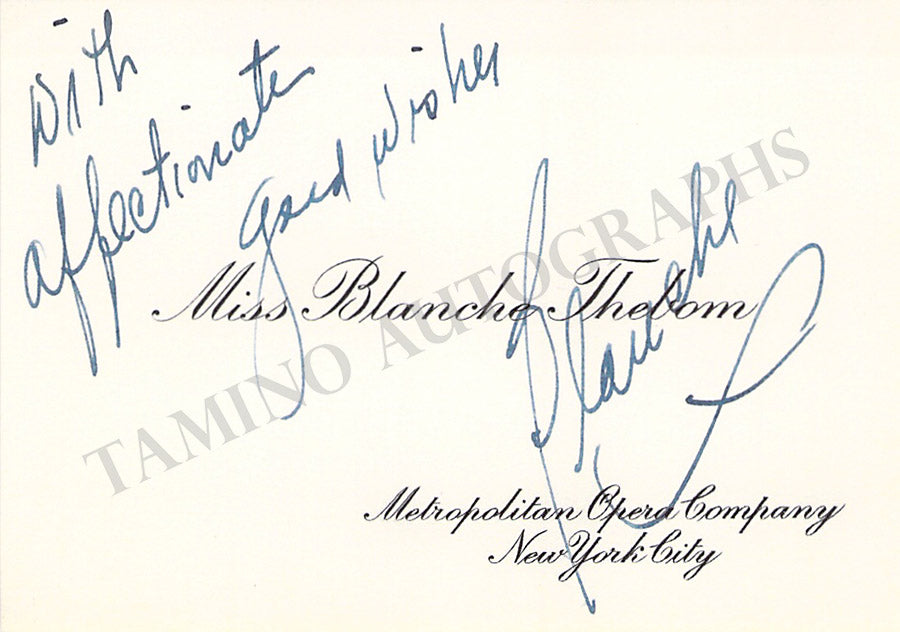 With
affectionate
good wishes
Miss Blanche Thebom
Blanche
TAMINO AUTOGRAPHS
Metropolitan Opera Company
New York City